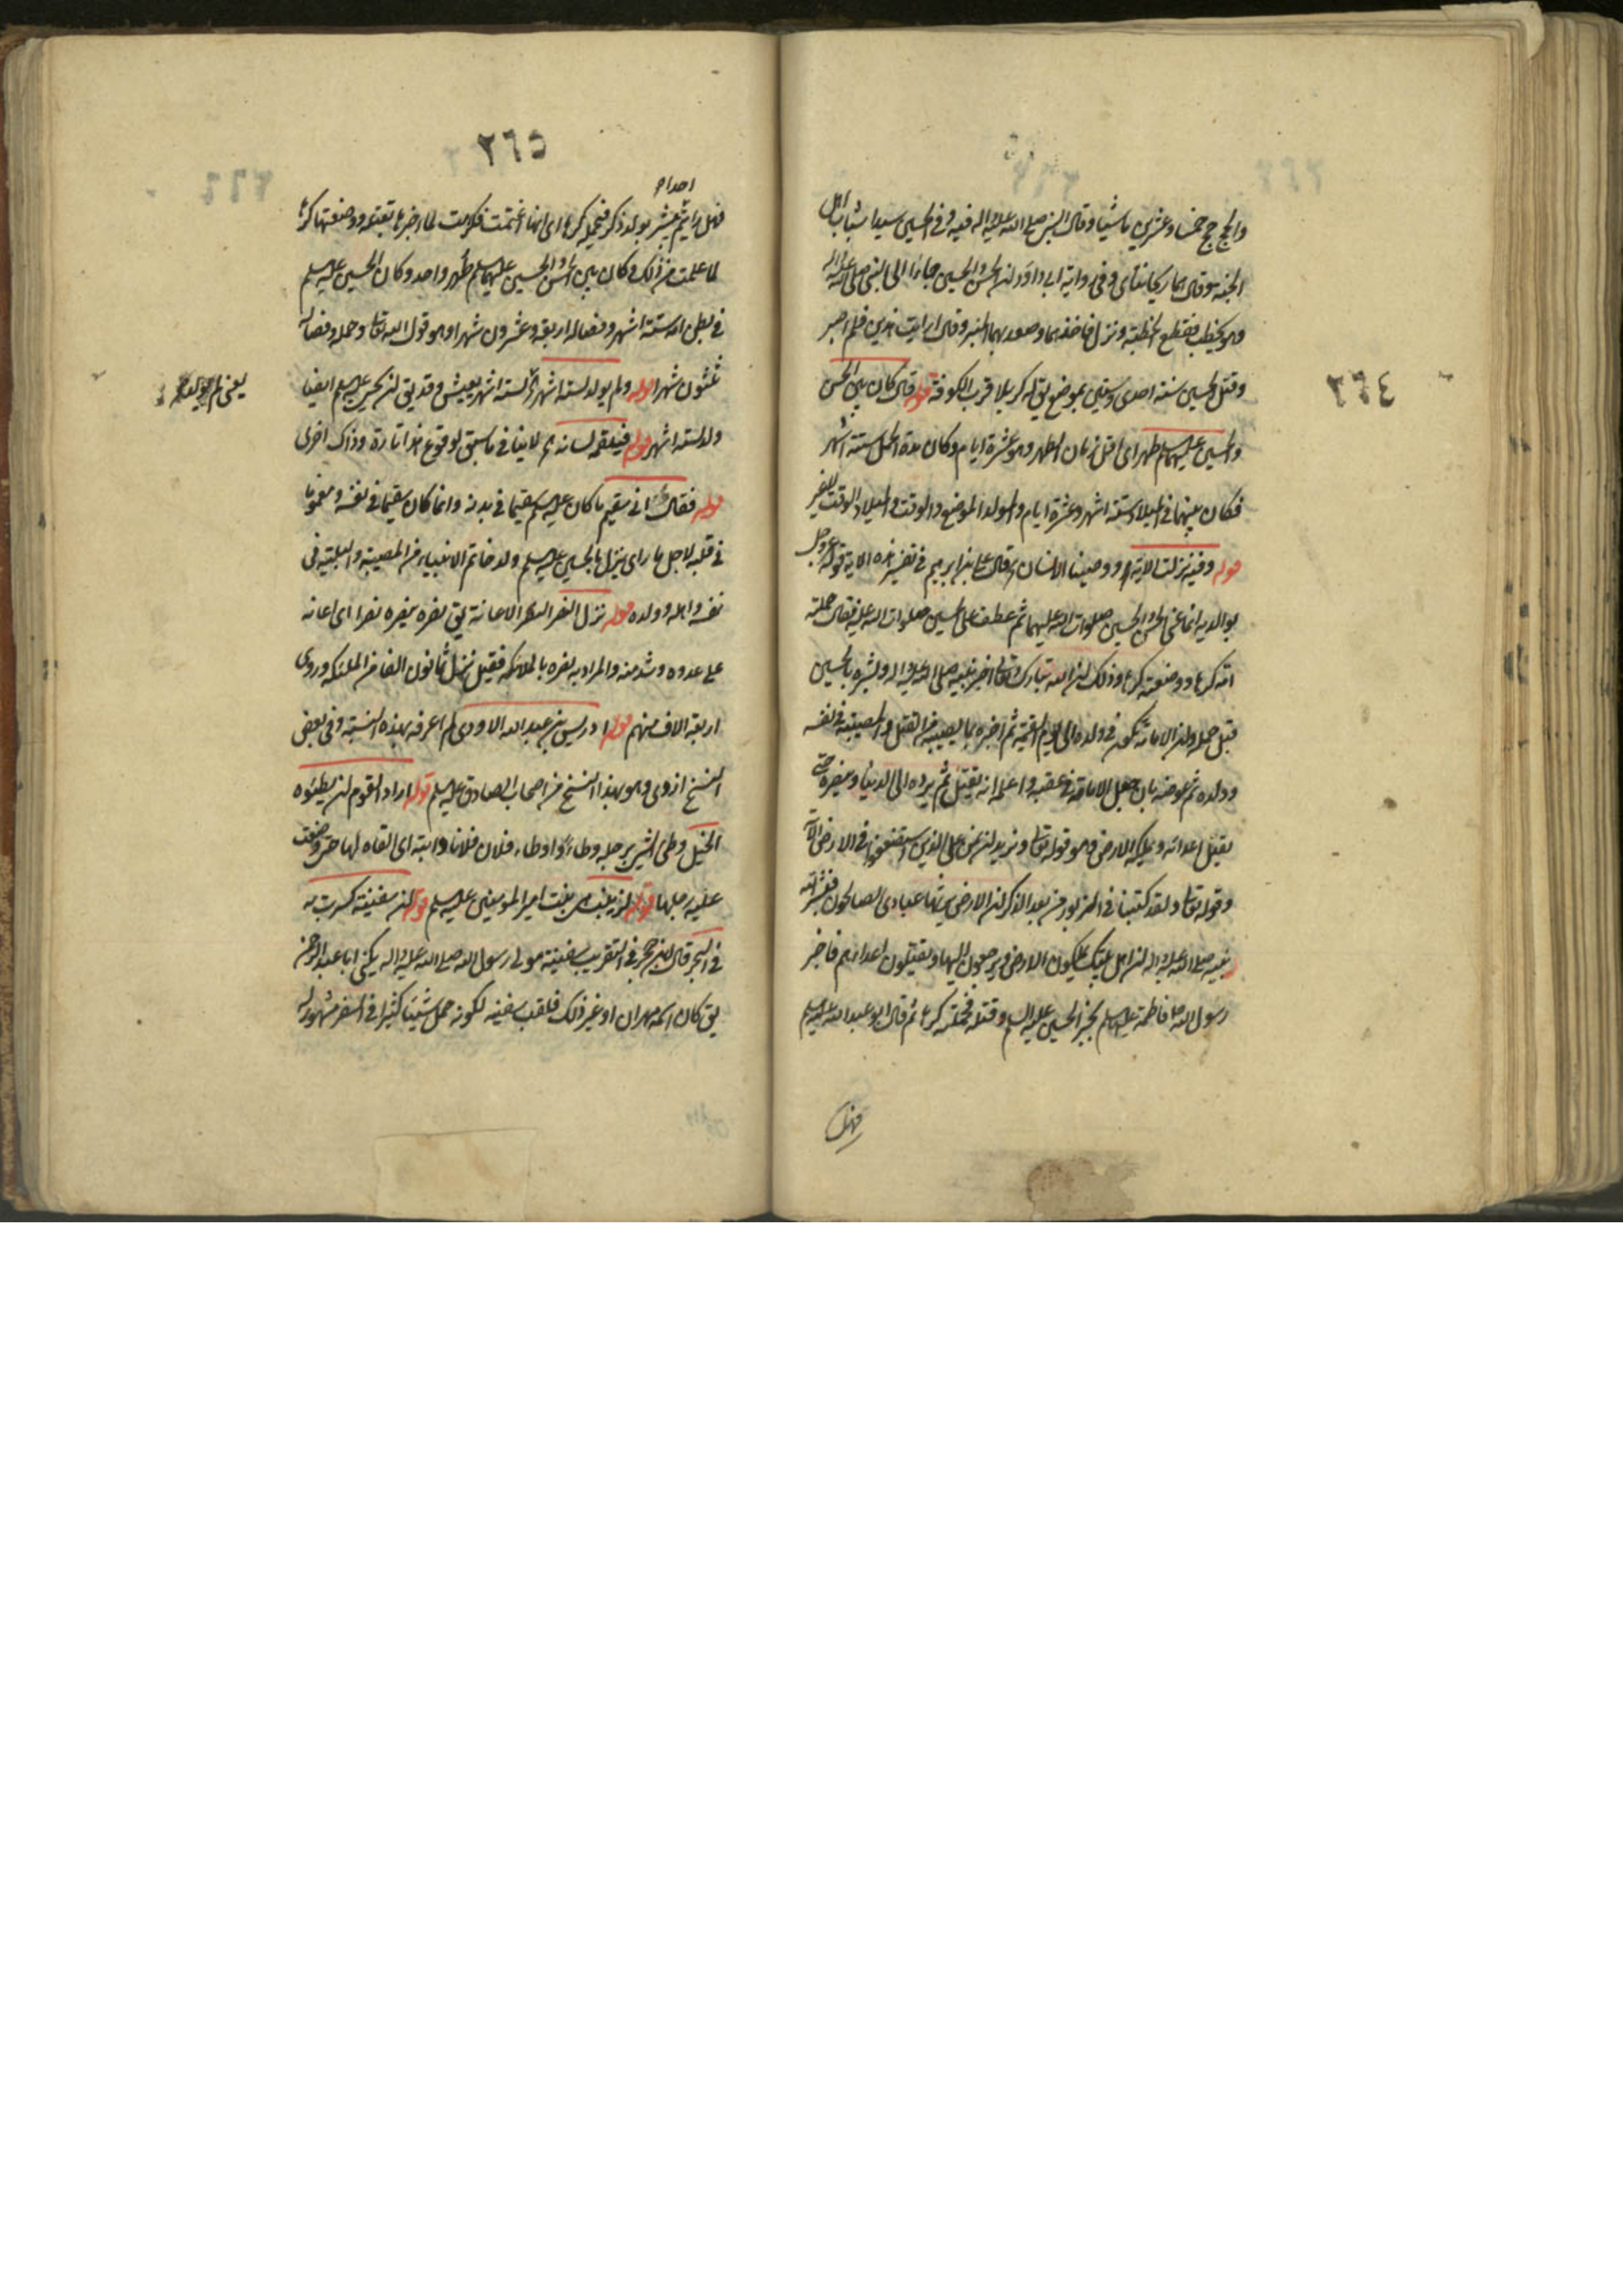 ٢٦٤
والحج حج خمسا وعشرين ماشيا وقال النبي صلى الله عليه واله فيه وفي الحسن سيدا شباب اهل
الجنة وقال هما ريحانتاي وفي رواية ابي داود ان الحسن والحسين جاءا الى النبي صلى الله عليه واله
وهو يخطب فقطع الخطبة ونزل فاخذهما وصعد بهما المنبر وقال رايت هذين فلم اصبر
وقتل الحسين سنة احدى وستين بموضع يق له كربلا قرب الكوفة قوله قال كان بين الحسن
والحسين عليهما السلم طهر اى اقل زمان الطهر وهو عشرة ايام وكان مدة الحمل ستة اشهر
فكان بينهما في الميلاد ستة اشهر وعشرة ايام والمولد الموضع والوقت والميلاد الوقت لا غير
قوله وفيه نزلت الاية ووصينا الانسان قال علي بن ابرهيم في تفسير هذه الاية قوله عز وجل
بوالديه انما عنى الحسن والحسين صلوات الله عليهما ثم عطف على الحسين صلوات الله عليه فقال حملته
امه كرها ووضعته كرها وذلك ان الله تبارك وتعالى اخبر نبيه صلى الله عليه واله وبشره بالحسين
قبل حمله وان الامامة تكون في ولده الى يوم القيمة ثم اخبره بما يصيبه من القتل والمصيبة في نفسه
وولده ثم عوضه بان جعل الامامة في عقبه واعلمه انه يقتل ثم يرده الى الدنيا وينصره حتى
يقتل اعدائه ويملكه الارض وهو قوله تعا ونريد ان نمن على الذين استضعفوا في الارض الآية
وقوله تعا ولقد كتبنا في الزبور من بعد الذكر ان الارض يرثها عبادي الصالحون فبشر الله
نبيه صلى الله عليه واله ان اهل بيتك يملكون الارض ويرجعون اليها ويقتلون اعداءهم فاخبر
رسول الله ص فاطمة عليها السلم بخبر الحسين عليه السلم وقتله فحملته كرها ثم قال ابو عبد الله عليه السلم
فهل
٢٦٥
احدا
فهل رايتم يبشر بولد ذكر فتحمله كرها اى انها اغتمت فكرهت لما اخبرها بقتله ووضعته كرها
لما علمت من ذلك وكان بين الحسن والحسين عليهما السلم طهر واحد وكان الحسين عليه السلم
في بطن امه ستة اشهر وفصاله اربعة وعشرون شهرا وهو قول الله تعا وحمله وفصاله
ثلثون شهرا قوله ولم يولد لستة اشهر لستة اشهر يعيش وقد يق ان يحيى عليه السلم ايضا
ولد لستة اشهر قوله فيلقمه لسانه لا ينافي ما سبق لوقوع هذا تارة وذاك اخرى
قوله فقال انى سقيم ما كان عليه السلم سقيما في بدنه وانما كان سقيما في نفسه ومغموما
في قلبه لاجل ما راى ينزل بالحسين عليه السلم ولد خاتم الانبياء من المصيبة والبلية في
نفسه واهله وولده قوله نزل النصر النصر الاعانة يق نصره ينصره نصرا اى اعانه
على عدوه وشد منه والمراد به نصره بالملائكة فقيل نزل ثمانون الفا من الملئكة وروى
اربعة الاف منهم قوله ادريس بن عبد الله الاودى لم اعرفه بهذه النسبة وفي بعض
النسخ ازدى وهو بهذا النسخ من اصحاب الصادق عليه السلم قوله اراد القوم ان يوطئوه
الخيل وطئ الشئ برجله وطاء واوطاء فلان فلانا دابته اى القاه لها حتى وضعت
عليه رجلها قوله زينب بنت امير المؤمنين عليه السلم قوله ان سفينة كسرت به
في البحر قال ابن حجر في التقريب سفينة مولى رسول الله صلى الله عليه واله يكنى ابا عبد الرحمن
يق كان اسمه مهران او غير ذلك فلقب سفينة لكونه حمل شيئا كثيرا في السفر مشهور له
يعني لم يولد